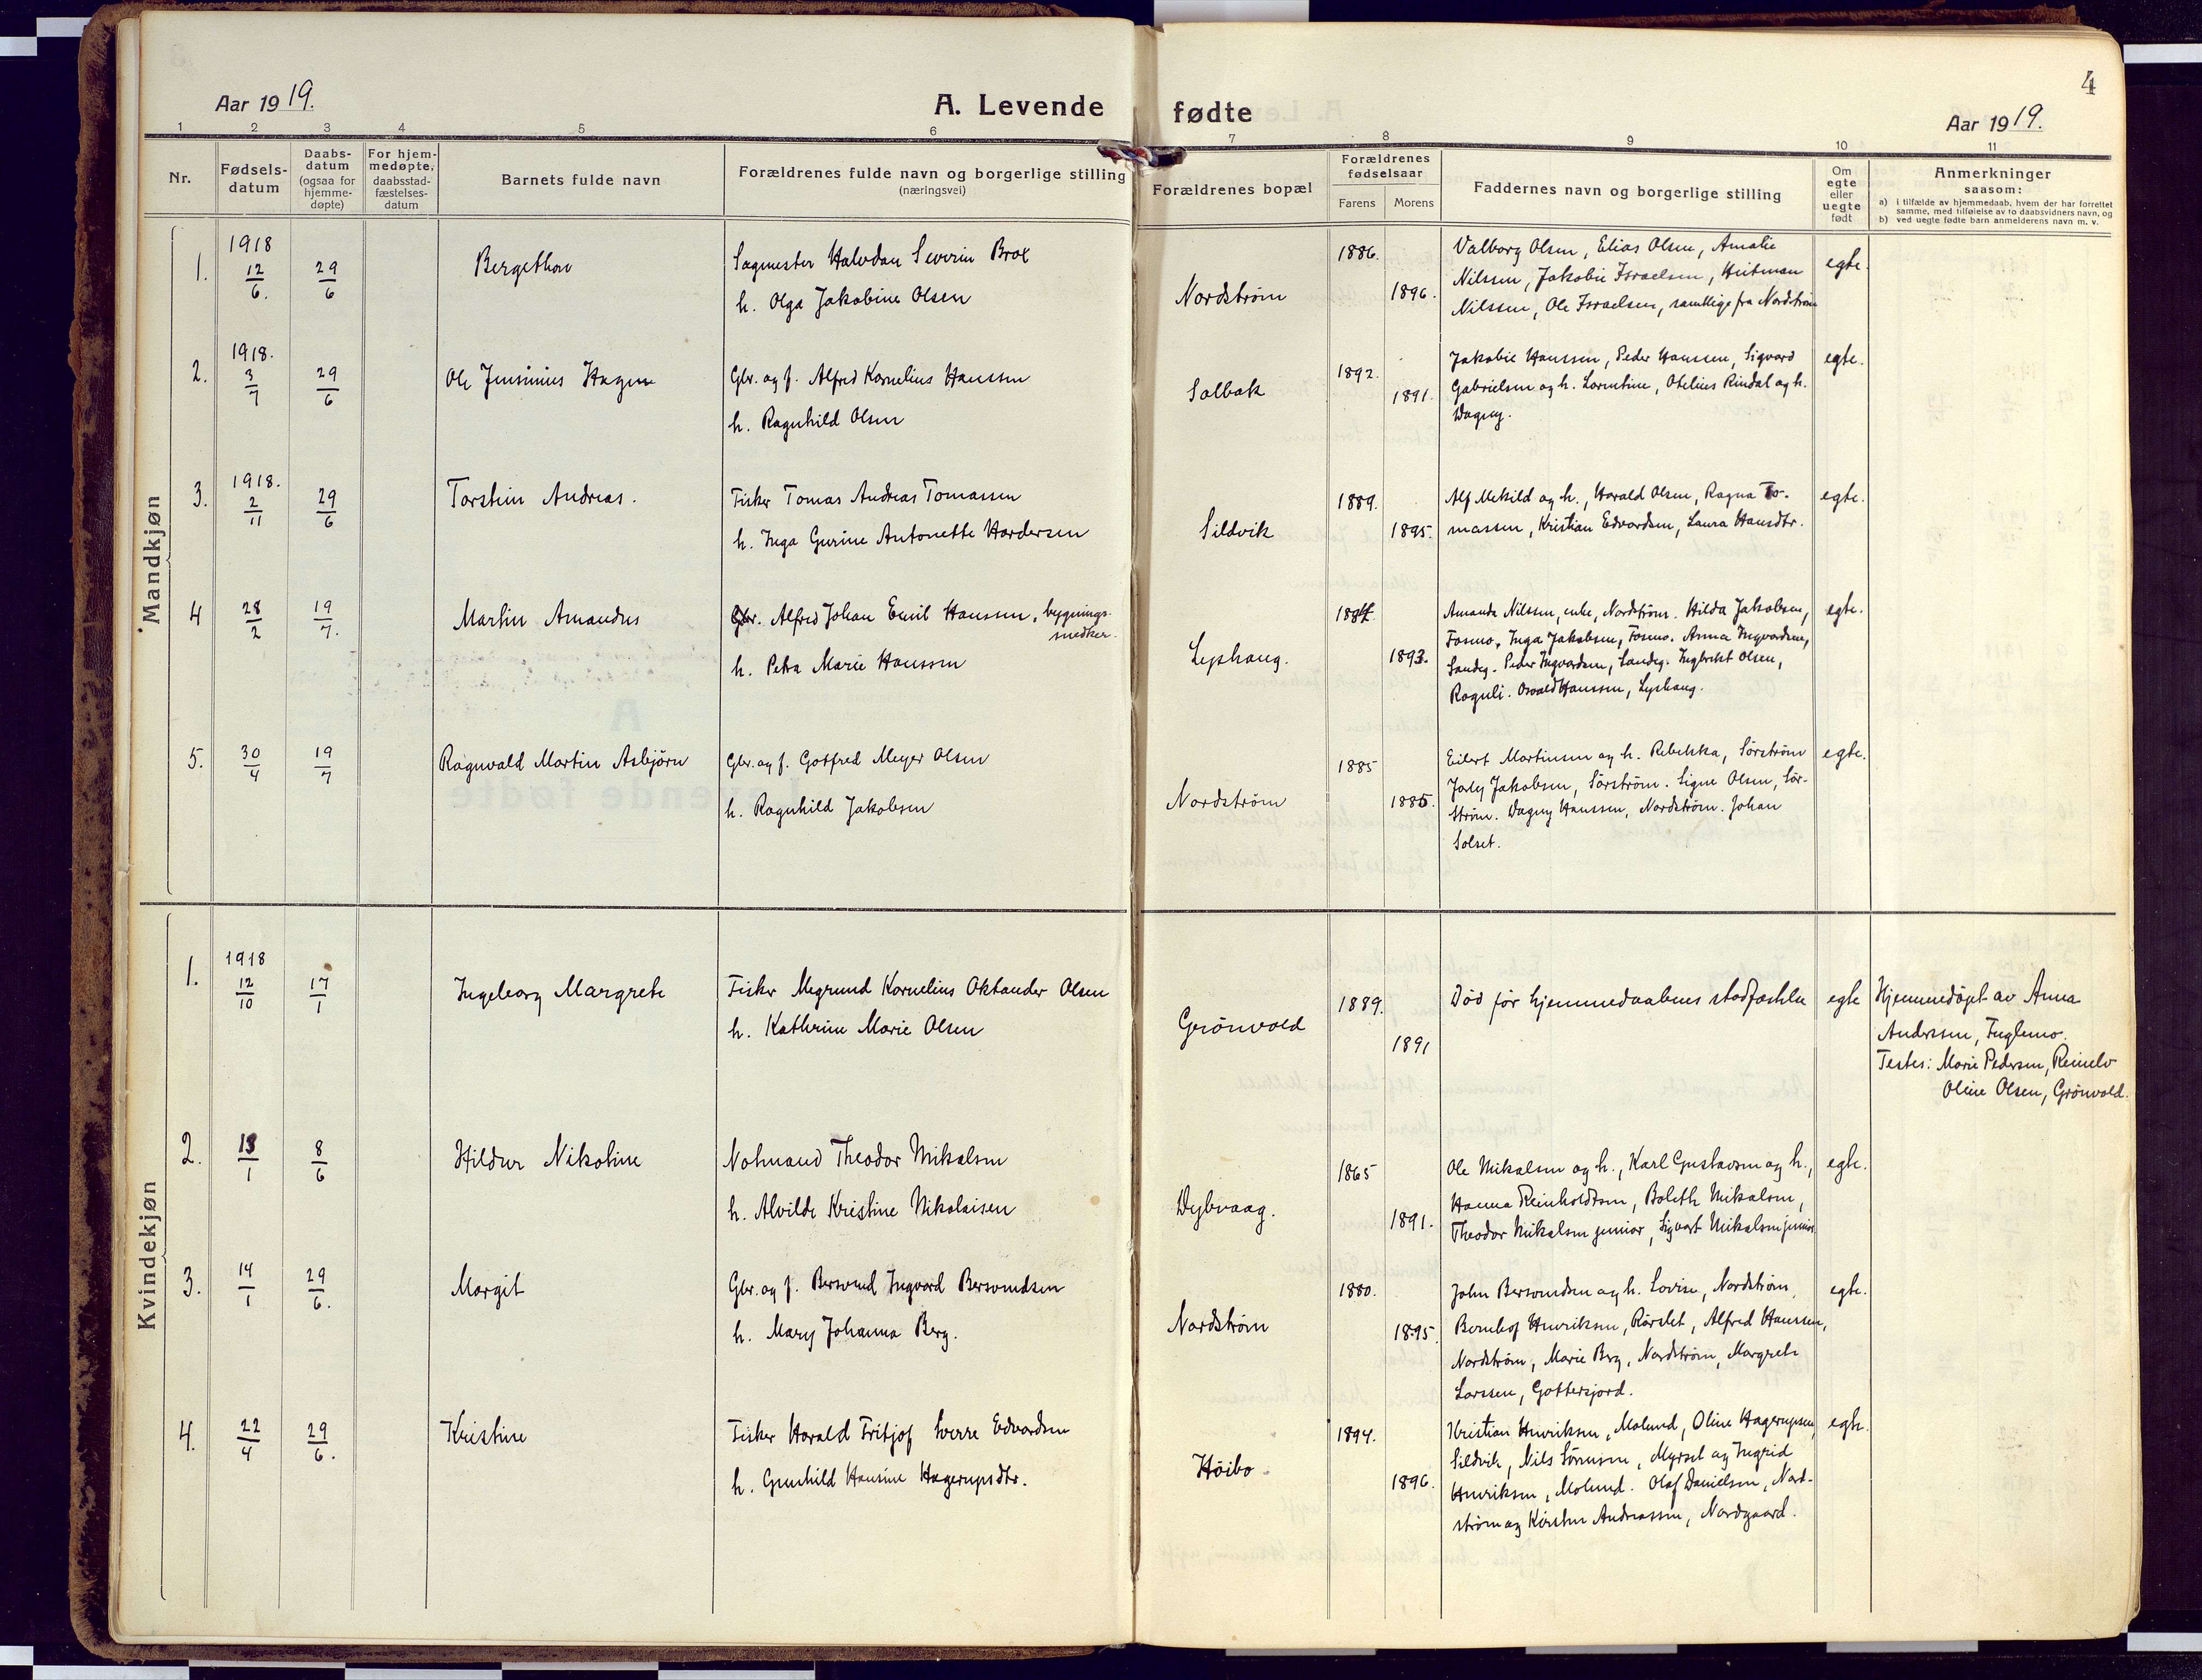 4
Aar 1919.
A. Levende fødte
Aar 1919.
1 2 3 4 5 6 7 8 9 10 11
Nr.
Fødsels-
datum
Daabs-
datum
(ogsaa for
hjemme-
døpte)
For hjem-
medøpte,
daabsstad-
fæstelses-
datum
Barnets fulde navn
Forældrenes fulde navn og borgerlige stilling
(næringsvei)
Forældrenes bopæl
Forældrenes
fødselsaar
Farens Morens
Faddernes navn og borgerlige stilling
Om
egte
eller
uegte
født
Anmerkninger
saasom:
a) i tilfælde av hjemmedaab, hvem der har forrettet
samme, med tilføielse av to daabsvidners navn, og
b) ved uegte fødte barn anmelderens navn m. v.
Mandkjøn
1.
1918
12/6.
29/6
Bergethon
Sagmester Halvdan Severin Brox
h. Olga Jakobine Olsen
Nordstrøm
1886.
1896.
Valborg Olsen, Elias Olsen, Amalie
Nilssen, Jakobie Israelsen, Heitman
Nilssen, Ole Israelsen, samtlige fra Nordstrøm
egte.
2.
1918.
3/7
29/6
Ole Jensinius Hagen
Gbr. og f. Alfred Kornelius Hanssen
h. Ragnhild Olsen
Solbak
1892.
1891.
Jakobie Hanssen, Peder Hanssen, Sigvard
Gabrielsen og h. Lorentine, Otelius Rindal og h.
Dagny.
egte.
3.
1918.
2/11
29/6
Torstein Andreas.
Fisker Tomas Andreas Tomassen
h. Inga Gurine Antonette Hardersen
Sildvik
1889.
1895.
Alf Mekild og h., Harald Olsen, Ragna To-
massen, Kristian Edvardsen, Laura Hansdtr.
egte.
4
28/2
19/7.
Martin Amandus
Gbr. Alfred Johan Emil Hanssen, bygnings-
smedker.
h. Petra Marie Hanssen
Lyshaug.
1893.
Amanda Nilssen, enke, Nordstrøm. Hilda Jakobsen,
Fosmo, Inga Jakobsen, Fosmo. Anna Ingvardsen,
Sandeg. Peder Ingvardsen, Sandeg. Ingbrikt Olsen,
Rognli. Osvald Hanssen, Lyshaug.
egte.
5.
30/4
19/7
Ragnvald Martin Asbjørn
Gbr. og f. Gotfred Meyer Olsen
h. Ragnhild Jakobsen
Nordstrøm
1885
1885.
Eilert Martinsen og h. Rebekka, Sørstrøm
Jakobsen, Sørstrøm. Signe Olsen, Sør-
strøm. Dagny Hanssen, Nordstrøm. Johan
Solset.
egte.
Kvindekjøn
1.
1918
12/10
17/1
Ingeborg Margrete
Fisker Megrund Kornelius Oktander Olsen
h. Kathrine Marie Olsen
Grønvold
1889.
1891
Død før hjemmedaabens stadfæstelse
egte
Hjemmedøpt av Anna
Anderssen, Fuglemo.
Testes: Marie Pedersen, Reinelv
Oline Olsen, Grønvold.
2.
13/1
8/6
Hildur Nikoline
Notmand Theodor Mikalsen
h. Alvilde Kristine Nikolaisen
Dybvaag.
1865
1891.
Ole Mikalsen og h., Karl Gustavsen og h.,
Hanna Reinholdtsen, Boleth Mikalsen,
Theodor Mikalsen junior, Sigvart Mikalsen junior
egte.
3.
14/1
29/6.
Margit
Gbr. og f. Bersvend Ingvard Bersvendsen
h. Mary Johanna Berg.
Nordstrøm
1880.
1895.
John Bersvendsen og h. Lovise, Nordstrøm,
Bernhof Henriksen, Rørslet, Alfred Hanssen,
Nordstrøm, Marie Berg, Nordstrøm, Margrete
Larssen, Gottesjord.
egte.
4.
22/4
29/6.
Kristine
Fisker Harald Fritjof Sverre Edvardsen
h. Gunhild Hansine Hagerupsdtr.
Høibo.
1894.
1896.
Kristian Henriksen, Molund, Oline Hagerupsen,
Sildvik, Nils Sørensen, Myrset og Ingrid
Henriksen, Molund. Olaf Danielsen, Nord-
strøm og Kirsten Andreassen, Nordgaard.
egte.